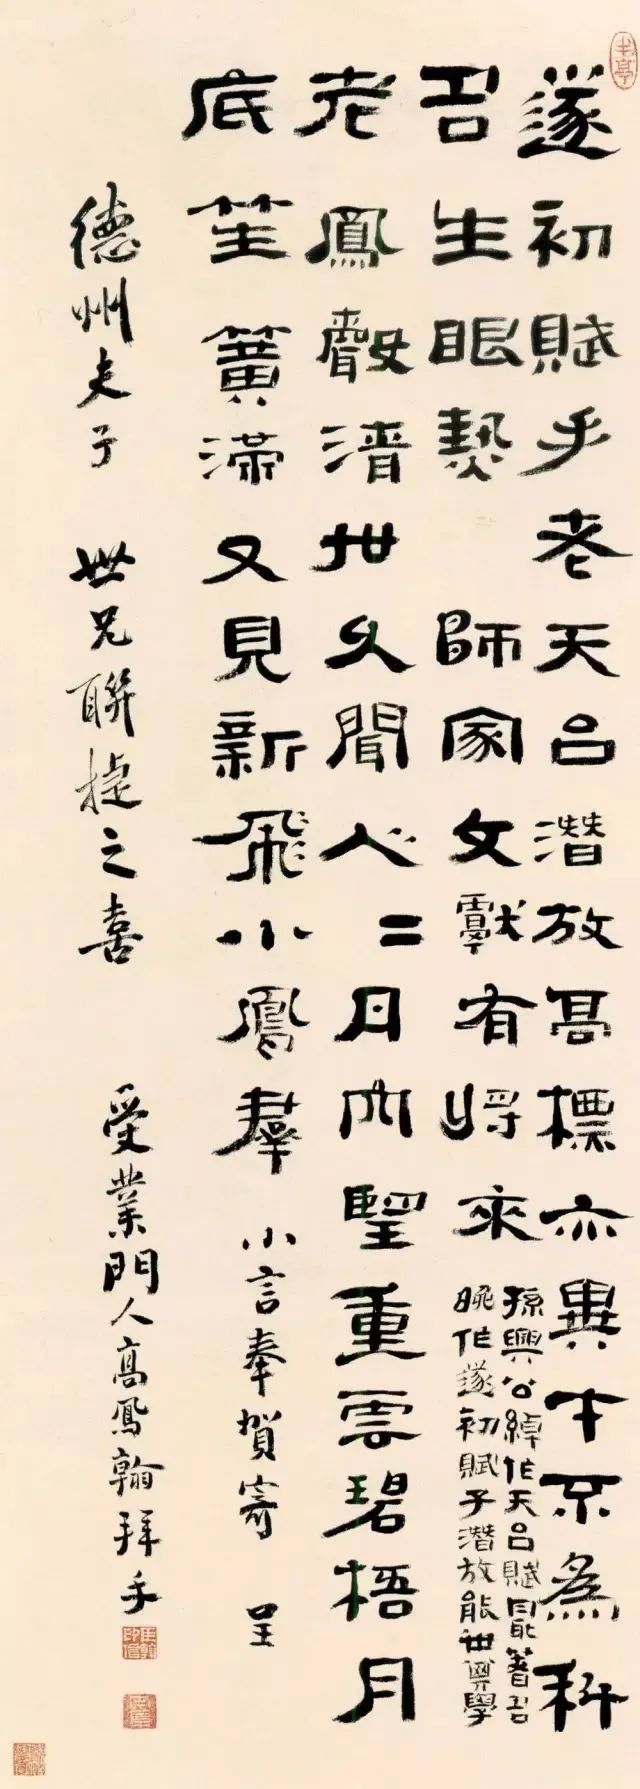 遂初賦手老天台潛放高標亦異才不為科
名生眼熱 師家文獻有將來
孫興公綽作天台賦最著名
晚作遂初賦子潛放能世其學
老鳳聲清世久聞人二月內望重雲碧梧月
底笙簧滿又見新飛小鳳羣 小言奉賀寄 呈
德州夫子 世兄聯捷之喜 受業門人高鳳翰拜手